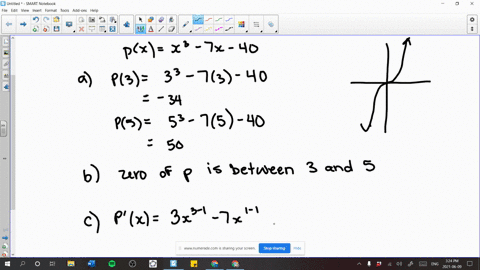 Untitled * - SMART Notebook
File Edit View Insert Format Tools Add-ons Help
p(x) = x³ - 7x - 40
a) P(3) = 3³ - 7(3) - 40
= -34
P(5) = 5³ - 7(5) - 40
= 50
b) zero of p is between 3 and 5
c) P'(x) = 3x³⁻¹ - 7x¹⁻¹
www.screencastomatic.com is sharing your screen.
Stop sharing
Hide
ENG
2021-06-09